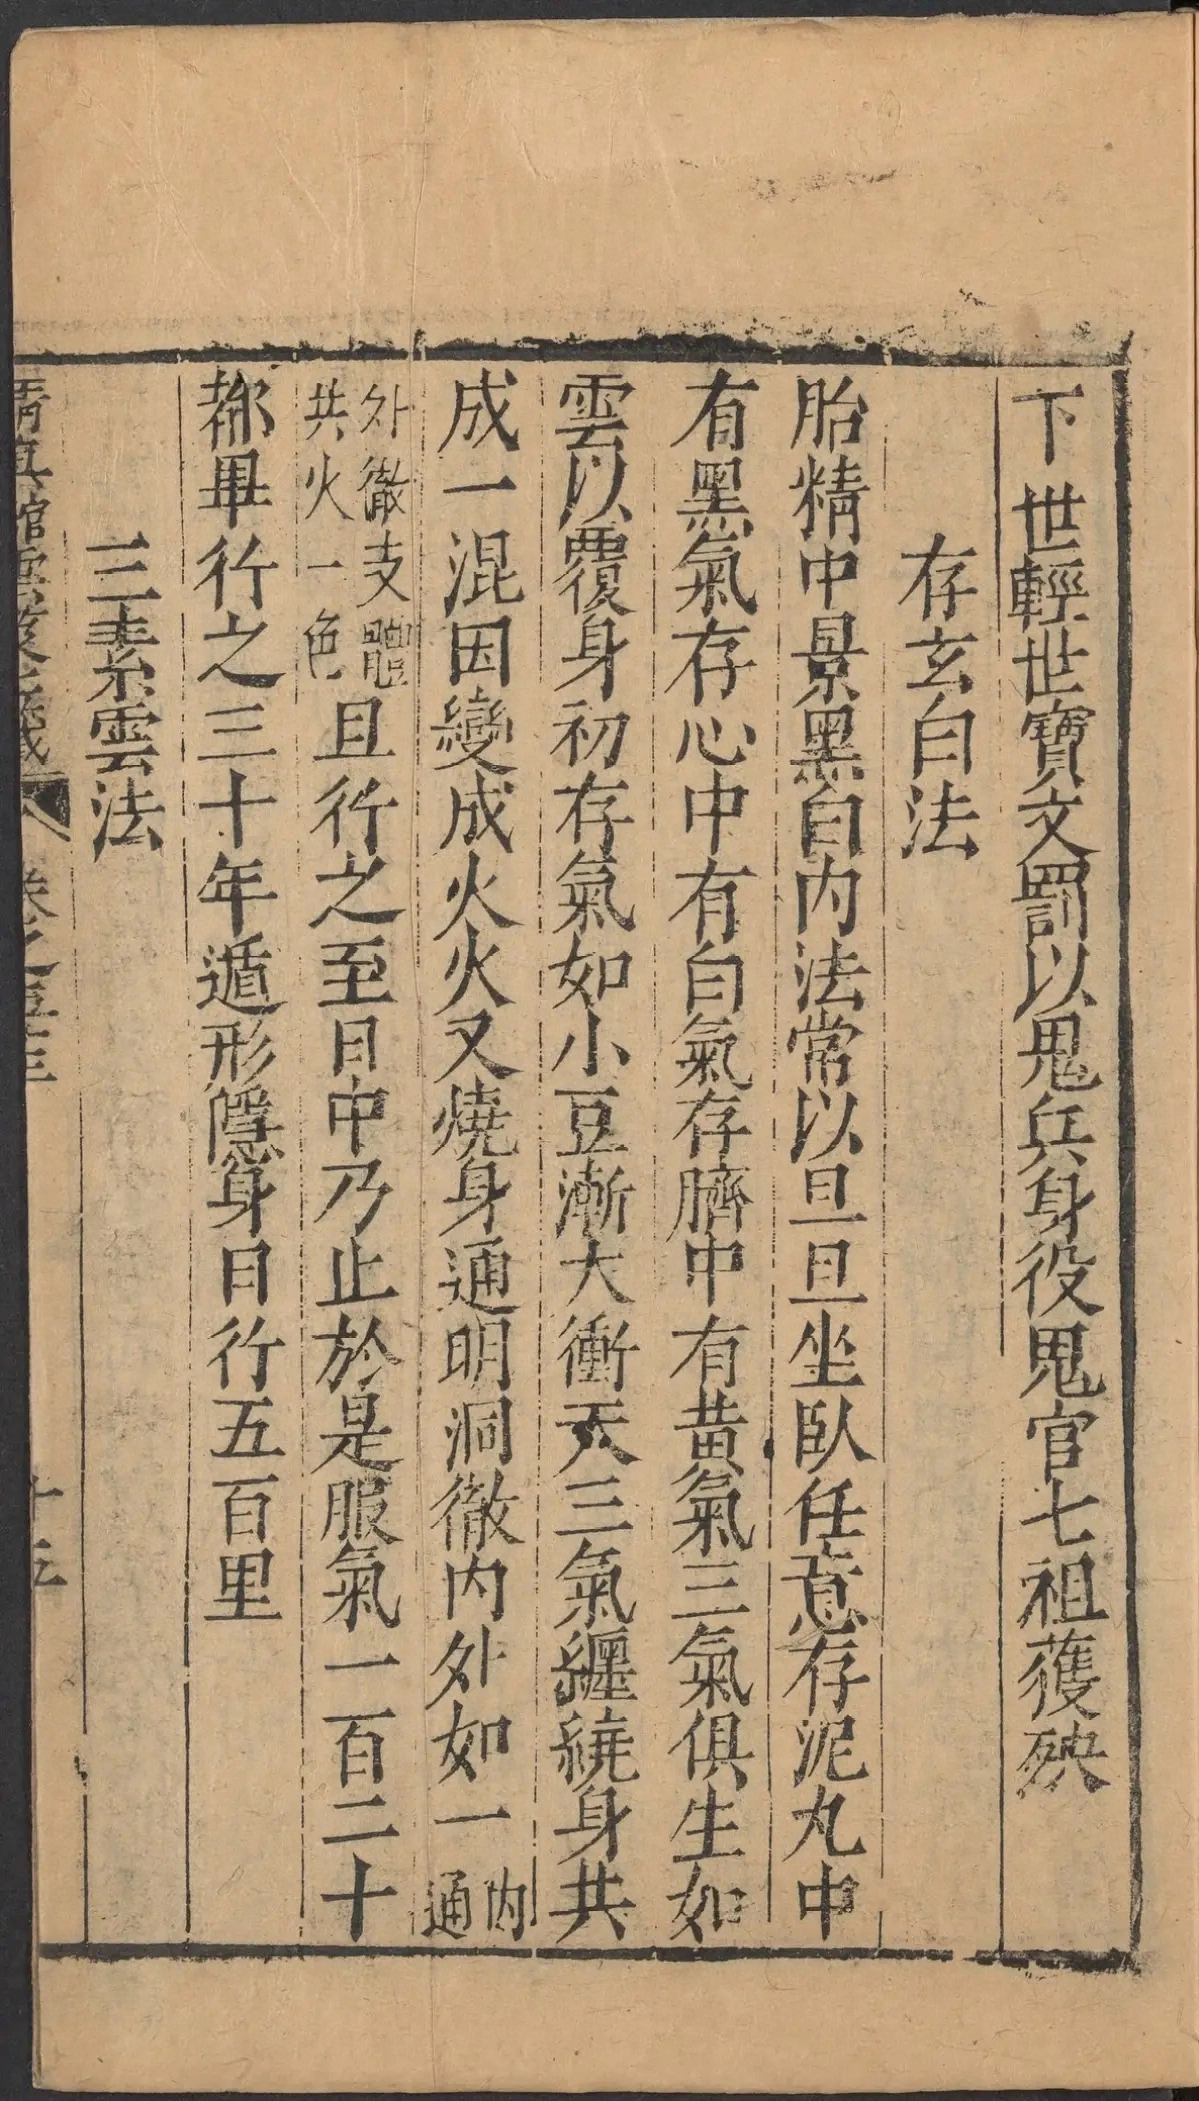 下世輕世寶文罰以鬼兵身役鬼官七祖獲殃
存玄白法
胎精中景黑白內法常以旦旦坐臥任意存泥丸中
有黑氣存心中有白氣存臍中有黃氣三氣俱生如
雲以覆身初存氣如小豆漸大衝天三氣纏繞身共
成一混因變成火火又燒身通明洞徹內外如一內通
外徹支體共火一色且行之至日中乃止於是服氣一百二十
都畢行之三十年遁形隱身日行五百里
三素雲法
清真館雲笈七籤 卷之五十三 十五